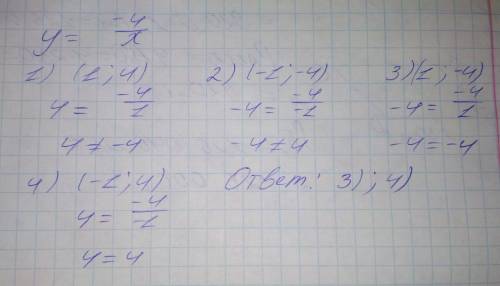 y = -4/x
1) (1; 4) 2) (-1; -4) 3) (1; -4)
4 = -4/1 -4 = -4/-1 -4 = -4/1
4 ≠ -4 -4 ≠ 4 -4 = -4
4) (-1; 4) Ответ: 3); 4)
4 = -4/-1
4 = 4